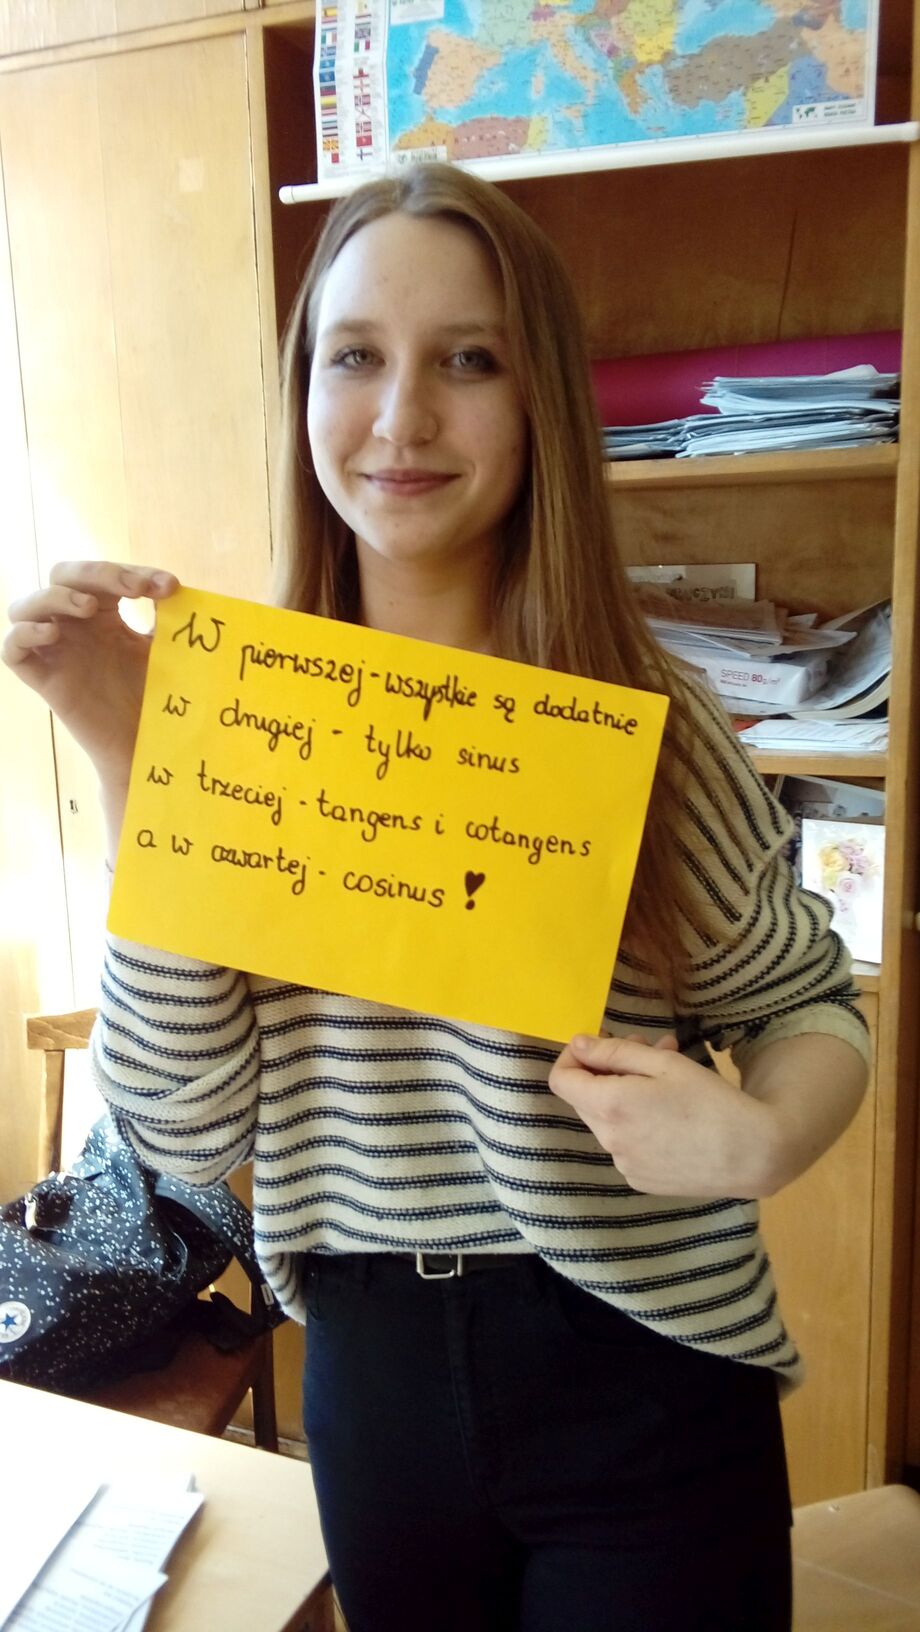 W pierwszej - wszystkie są dodatnie
w drugiej - tylko sinus
w trzeciej - tangens i cotangens
a w czwartej - cosinus !
SPEED 80 g/m²